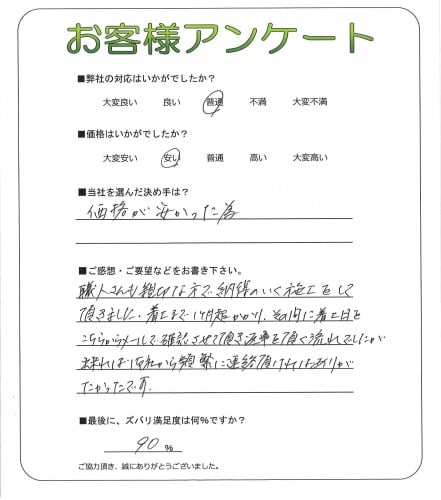 お客様アンケート
■弊社の対応はいかがでしたか?
大変良い 良い 普通 不満 大変不満
■価格はいかがでしたか?
大変安い 安い 普通 高い 大変高い
■当社を選んだ決め手は?
価格が安かった為
■ご感想・ご要望などをお書き下さい。
職人さんも親切な方で納得のいく施工をして
頂きました。着工まで1ヶ月超かかり、その間に着工日を
こちらからメールで確認させて頂き返事を頂く流れでしたが
出来れば御社から頻繁に連絡頂ければありが
たかったです。
■最後に、ズバリ満足度は何%ですか?
90 %
ご協力頂き、誠にありがとうございました。